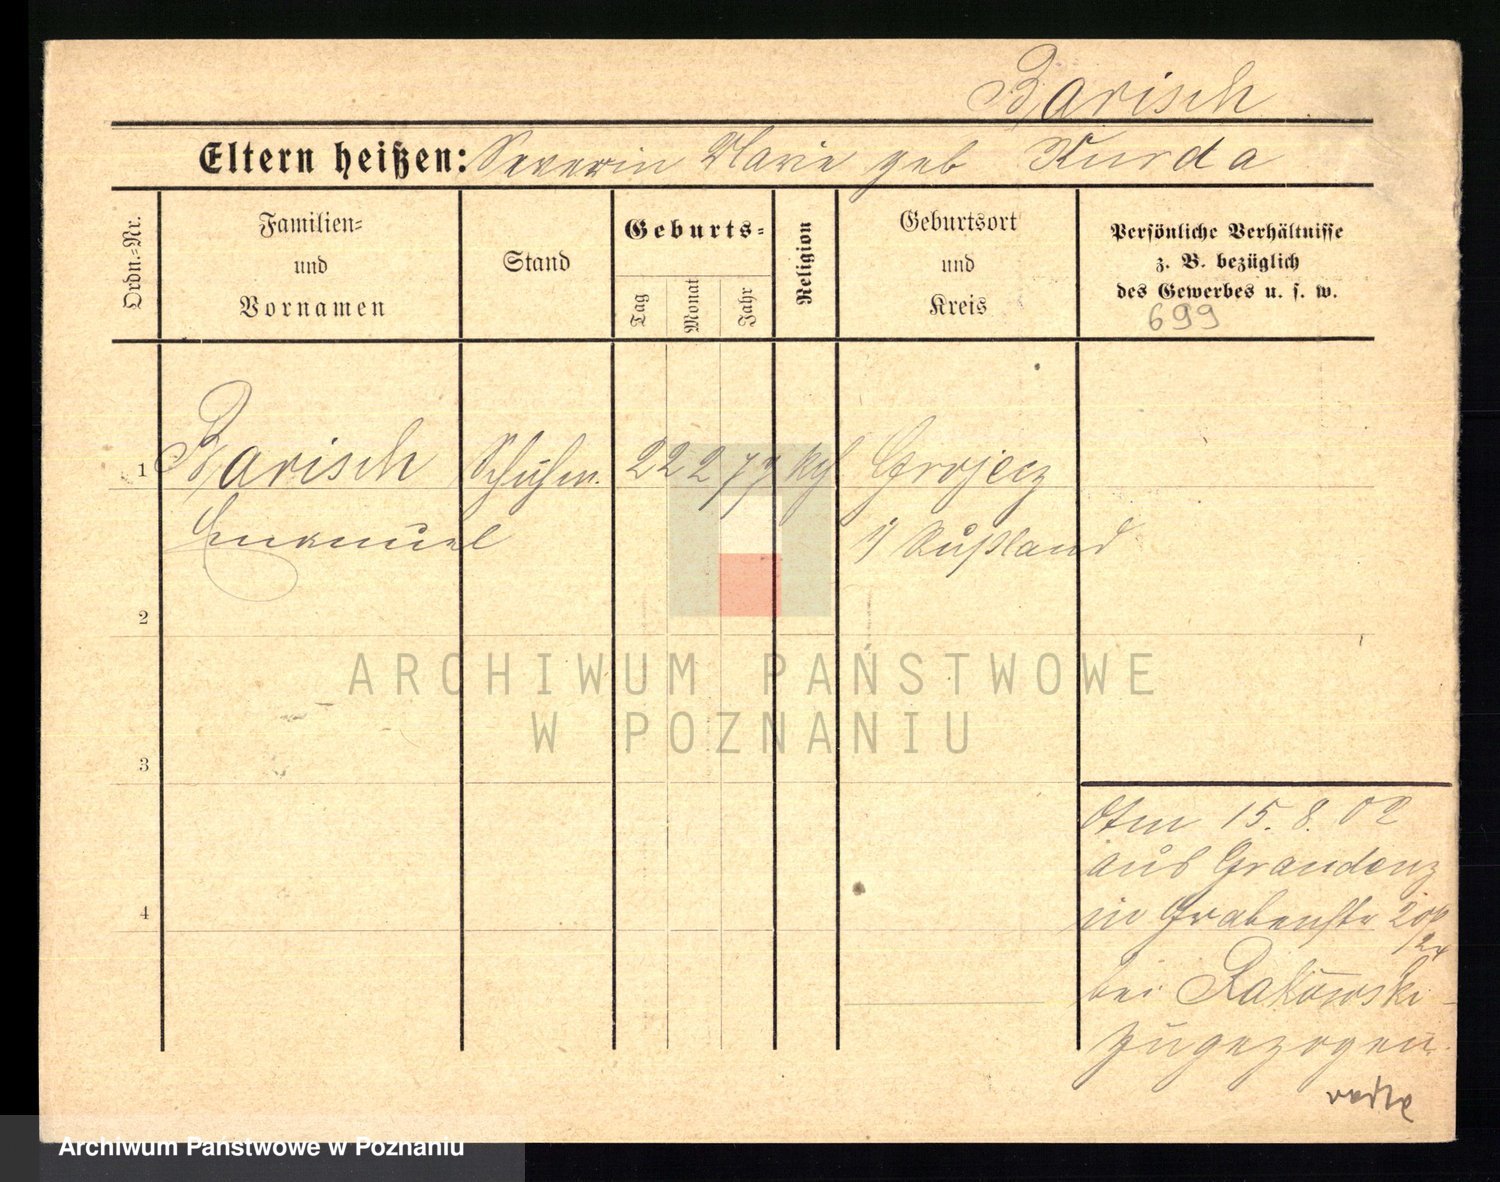 Barisch
Eltern heißen: Severin Marie geb Kurda
Ordn.-Nr.
Familien-
und
Vornamen
Stand
Geburts-
Tag
Monat
Jahr
Religion
Geburtsort
und
Kreis
Persönliche Verhältnisse
z. B. bezüglich
des Gewerbes u. s. w.
699
1 Barisch Schuhm. 22 2 77 kth Grojecz
Emanuel i/ Rußland
2
3
4
Am 15. 8. 02
aus Graudenz
in Grabenstr
bei Rakowski
zugezogen.
ARCHIWUM PAŃSTWOWE
W POZNANIU
Archiwum Państwowe w Poznaniu